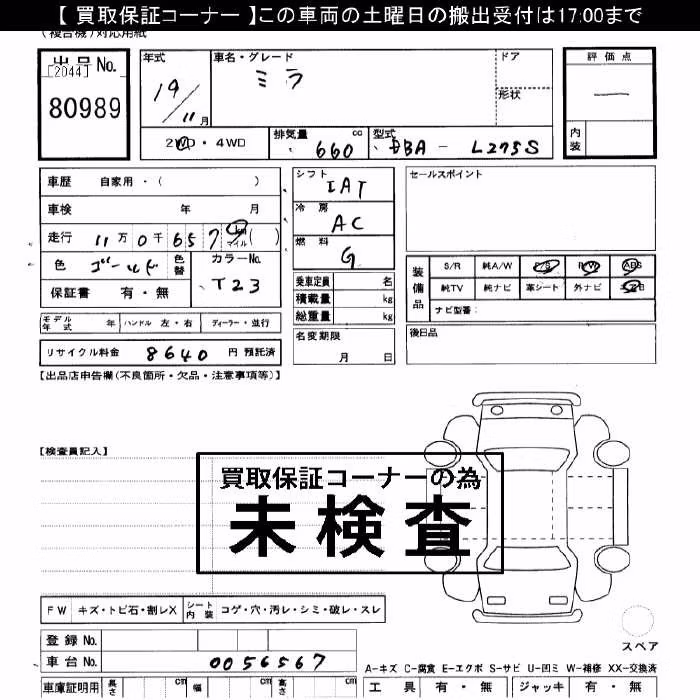 【 買取保証コーナー 】この車両の土曜日の搬出受付は17:00まで
(複合機)対応用紙
出品No.
[2044]
80989
年式
19/11月
車名・グレード
ミラ
ドア
形状
評価点
内装
2WD・4WD
排気量 660 cc
型式 DBA - L275S
車歴 自家用・( )
車検 年 月
走行 11万0千657 km マイル ( )
色 ゴールド 色替
カラーNo. T23
保証書 有・無
シフト IAT
冷房 AC
燃料 G
乗車定員 名
積載量 kg
総重量 kg
セールスポイント
装備品
S/R 純A/W P/S P/W ABS
純TV 純ナビ 革シート 外ナビ
ナビ型番:
モデル年式 年 ハンドル 左・右 ディーラー・並行
リサイクル料金 8640 円 預託済
名変期限 月 日
後日品
【出品店申告欄(不良箇所・欠品・注意事項等)】
【検査員記入】
買取保証コーナーの為
未検査
FW キズ・トビ石・割レX シート内装 コゲ・穴・汚レ・シミ・破レ・スレ
登録No.
車台No. 0056567
車庫証明用 長さ cm 幅 cm 高さ cm
スペア
A-キズ C-腐食 E-エクボ S-サビ U-凹ミ W-補修 XX-交換済
工具 有・無 ジャッキ 有・無